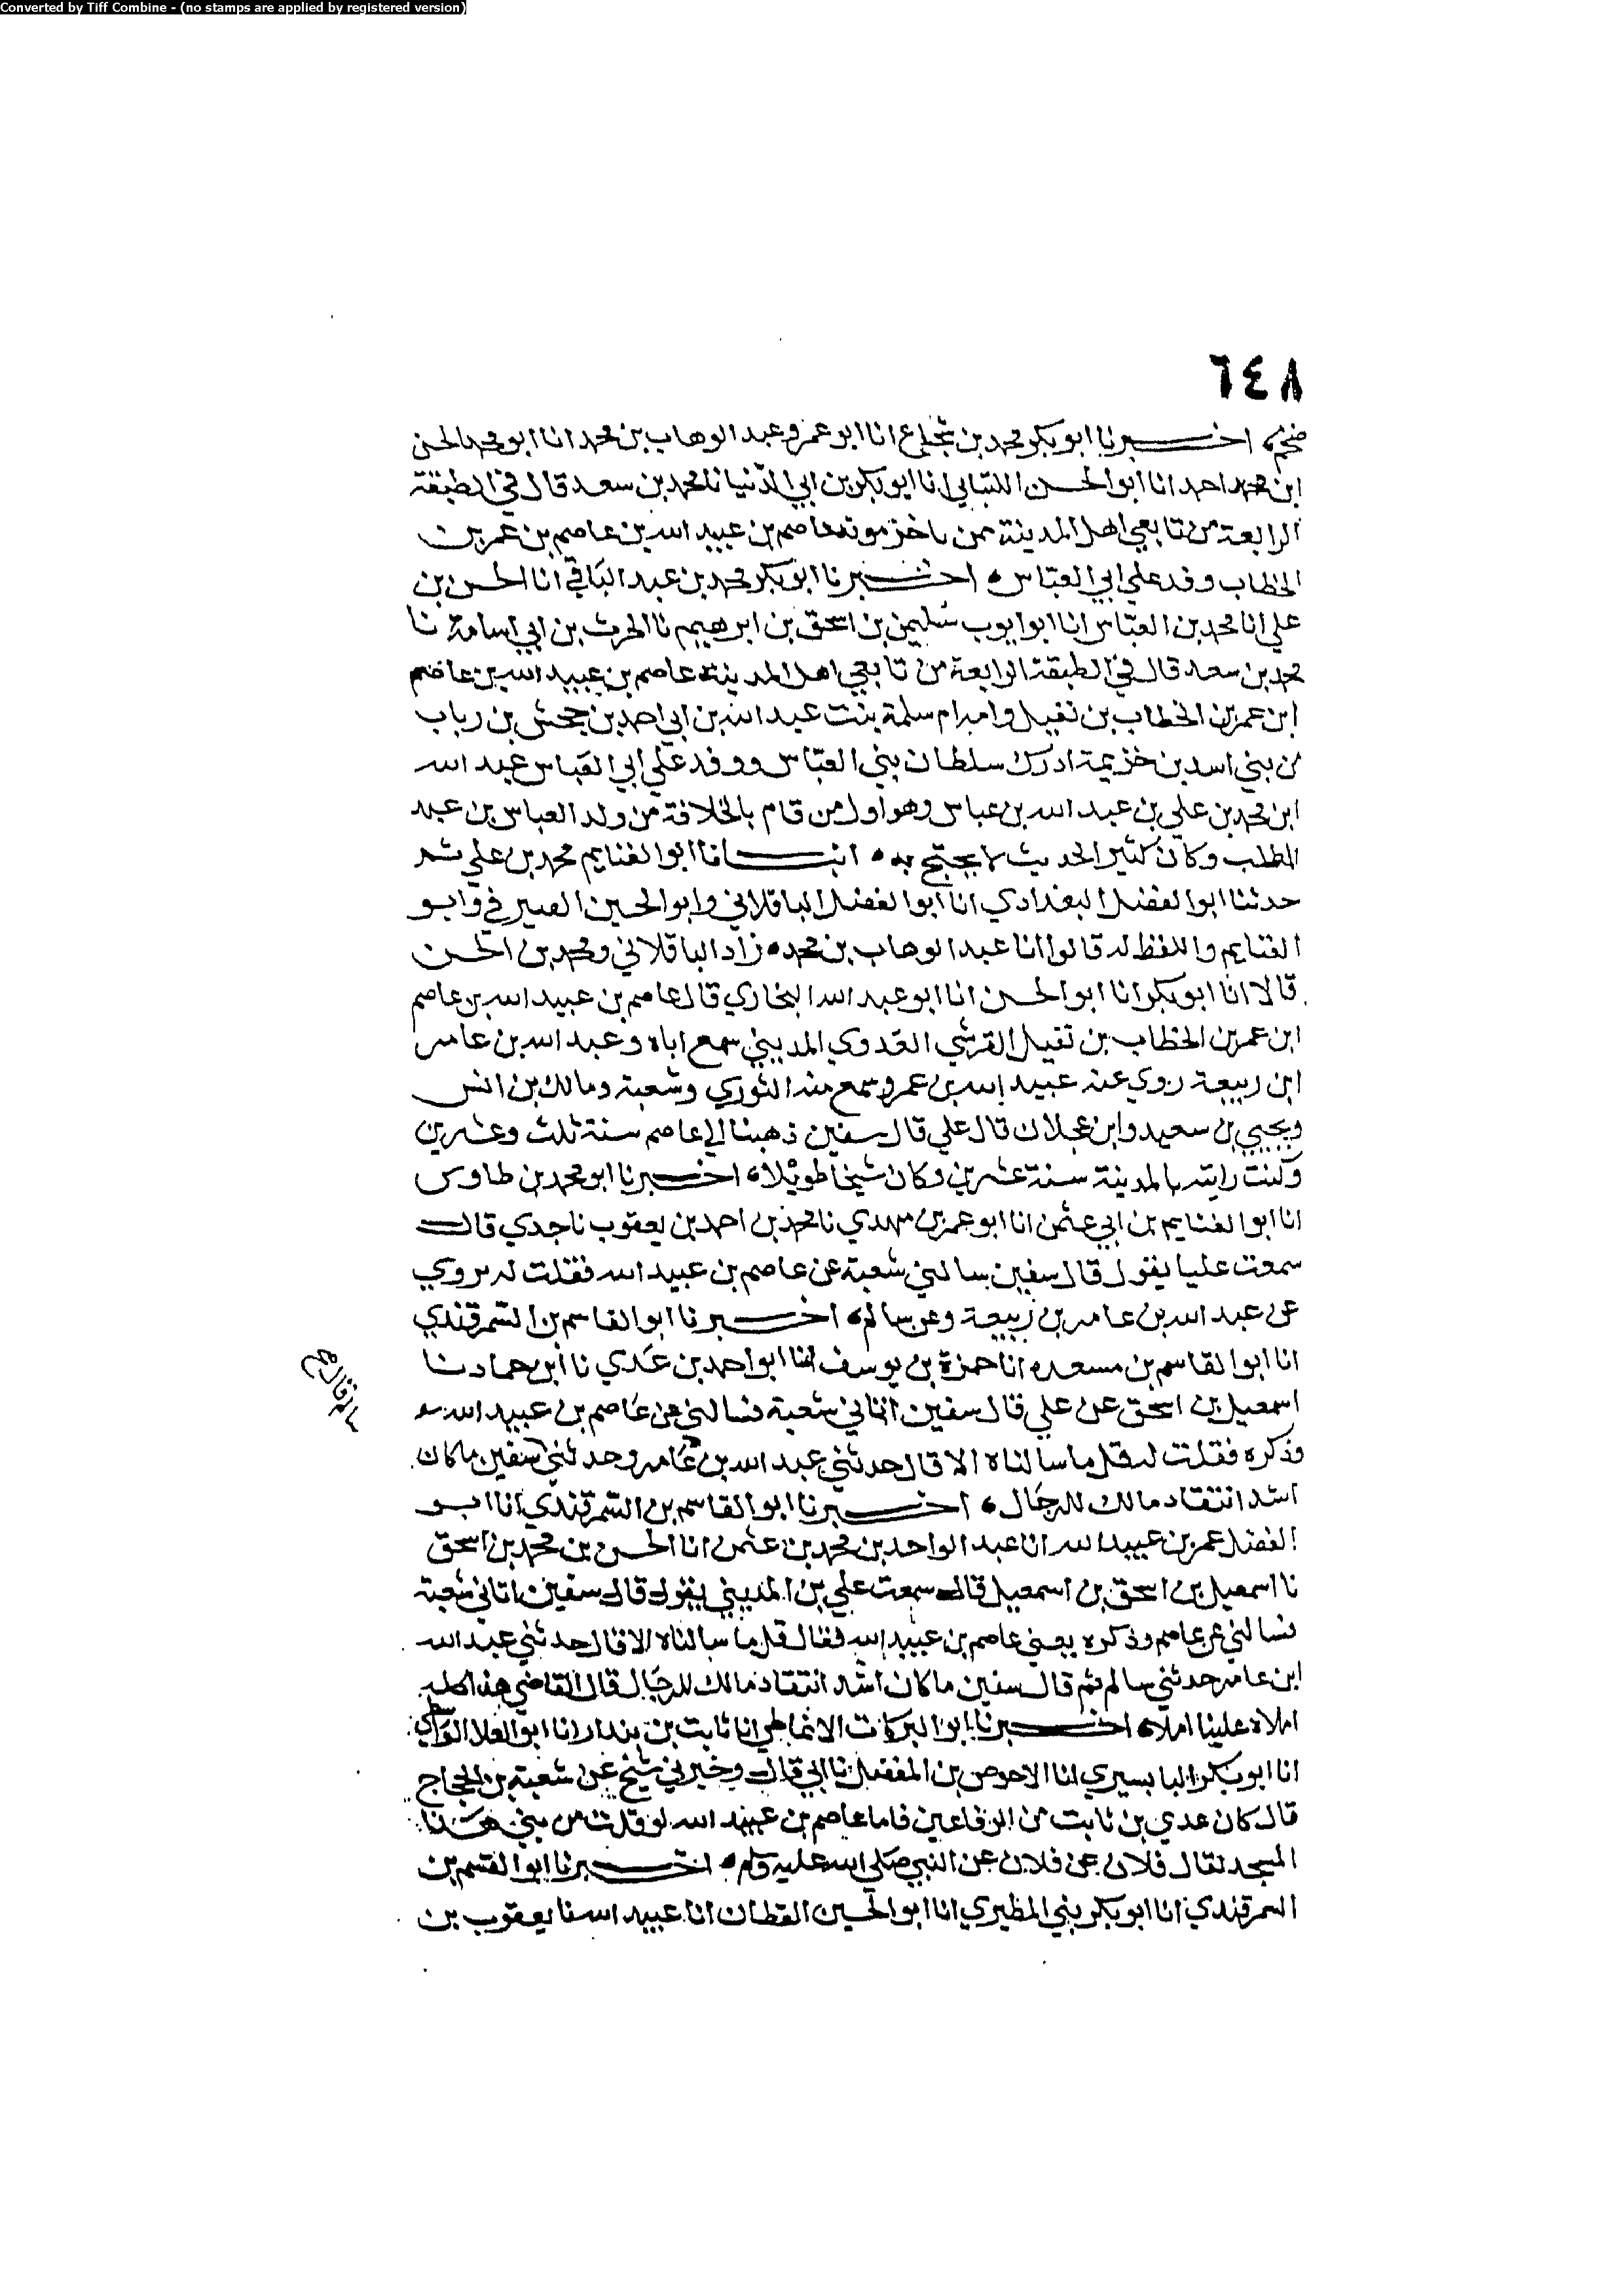 Converted by Tiff Combine - (no stamps are applied by registered version)
٦٤٨
اخبرنا ابو بكر محمد بن شجاع انا ابو عمرو عبد الوهاب بن محمد انا ابو محمد الحسن
ابن محمد احمد انا ابو الحسن اللنباني انا ابو بكر بن ابي الدنيا نا محمد بن سعد قال في الطبقة
الرابعة من تابعي اهل المدينة ممن تاخر موته عاصم بن عبيد الله بن عاصم بن عمر بن
الخطاب وفد علي ابي العباس اخبرنا ابو بكر محمد بن عبد الباقي انا الحسن بن
علي انا محمد بن العباس انا ابو ايوب سليمن بن اسحق بن ابرهيم نا الحرث بن ابي اسامة نا
محمد بن سعد قال في الطبقة الرابعة من تابعي اهل المدينة عاصم بن عبيد الله بن عاصم
ابن عمر بن الخطاب بن نفيل وامه ام سلمة بنت عبد الله بن ابي احمد بن جحش بن رباب
من بني اسد بن خزيمة ادرك سلطان بني العباس ووفد علي ابي العباس عبد الله
ابن محمد بن علي بن عبد الله بن عباس وهو اول من قام بالخلافة من ولد العباس بن عبد
المطلب وكان كثير الحديث لا يحتج به انبانا ابو الغنايم محمد بن علي ثم
حدثنا ابو الفضل البغدادي انا ابو الفضل الباقلاني وابو الحسين الصيرفي وابو
الغنايم واللفظ له قالوا انا عبد الوهاب بن محمد زاد الباقلاني ومحمد بن الحسن
قالا انا ابو بكر انا ابو الحسن انا ابو عبد الله البخاري قال عاصم بن عبيد الله بن عاصم
ابن عمر بن الخطاب بن نفيل القرشي العدوي المديني سمع اباه وعبد الله بن عامر
ابن ربيعة روي عنه عبيد الله بن عمر وسمع منه الثوري وشعبة ومالك بن انس
ويحيي بن سعيد وابن عجلان قال علي قال سفين ذهبنا الي عاصم سنة ثلث وعشرين
وكنت رايته بالمدينة سنة عشرين وكان شيخا طويلا اخبرنا ابو محمد بن طاوس
انا ابو الغنايم بن ابي عثمن انا ابو عمر بن مهدي نا محمد بن احمد بن يعقوب نا جدي قال
سمعت عليا يقول قال سفين سالني شعبة عن عاصم بن عبيد الله فقلت له يروي
عن عبد الله بن عامر بن ربيعة وعن سالم اخبرنا ابو القاسم بن السمرقندي
انا ابو القاسم بن مسعده انا حمزة بن يوسف انا ابو احمد بن عدي نا ابن حماد نا
اسمعيل بن اسحق عن علي قال سفين اتاني شعبة فسالني عن عاصم بن عبيد الله
وذكره فقلت له قل ما سالناه الا قال حدثني عبد الله بن عامر وحدثني سفين ما كان
اشد انتقاد مالك للرجال اخبرنا ابو القاسم بن السمرقندي انا ابو
الفضل عمر بن عبيد الله انا عبد الواحد بن محمد بن عثمن انا الحسن بن محمد بن اسحق
نا اسمعيل بن اسحق بن اسمعيل قال سمعت علي بن المديني يقول قال سفين اتاني شعبة
فسالني عن عاصم وذكره يعني عاصم بن عبيد الله فقال قل ما سالناه الا قال حدثني عبد الله
ابن عامر حدثني سالم ثم قال سفين ما كان اشد انتقاد مالك للرجال قال القاضي هذا كله
املاه علينا املاء اخبرنا ابو البركات الانماطي انا ثابت بن بندار انا ابو العلا الواسطي
انا ابو بكر البابسيري انا الاحوص بن المفضل نا ابي قال وخبرني شيخ عن شعبة بن الحجاج
قال كان عدي بن ثابت من الرفاعين فاما عاصم بن عبيد الله لو قلت من بني هذا
المسجد لقال فلان عن فلان عن النبي صلي الله عليه وسلم اخبرنا ابو القسم بن
السمرقندي انا ابو بكر بن الطبري انا ابو الحسين القطان انا عبيد الله نا يعقوب بن